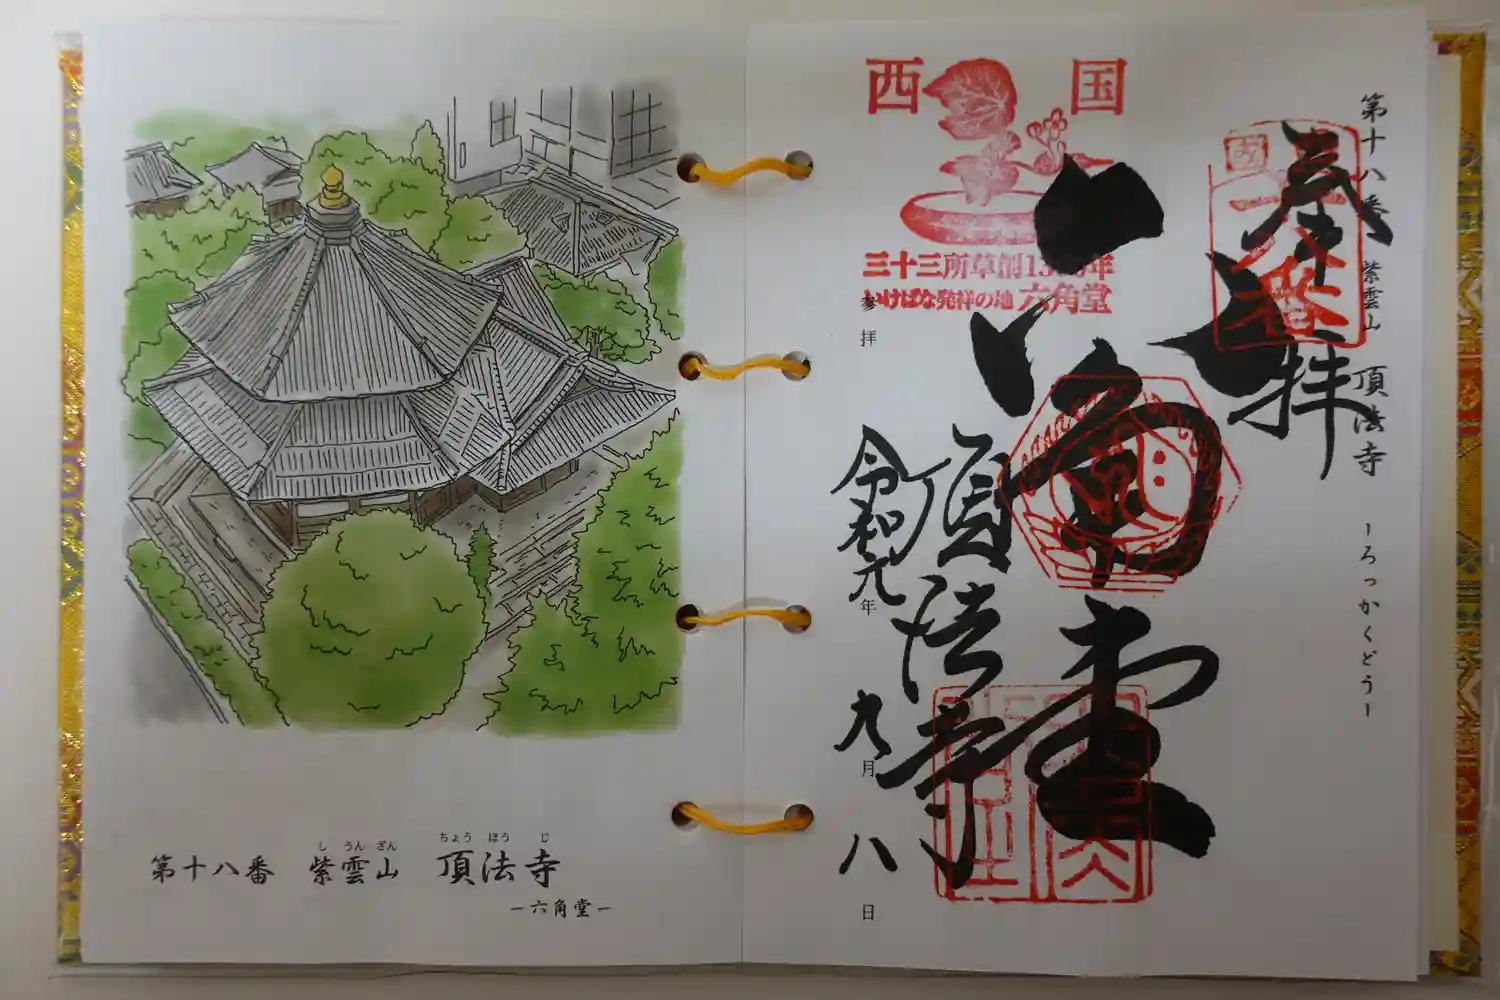 第十八番 紫雲山 頂法寺
し うん ざん ちょう ほう じ
ー六角堂ー
第十八番 紫雲山 頂法寺 ーろっかくどうー
奉拝
十八番
西国
三十三所草創13 年
いけばな発祥の地 六角堂
六角堂
頂法寺
参拝
令和元年九月八日